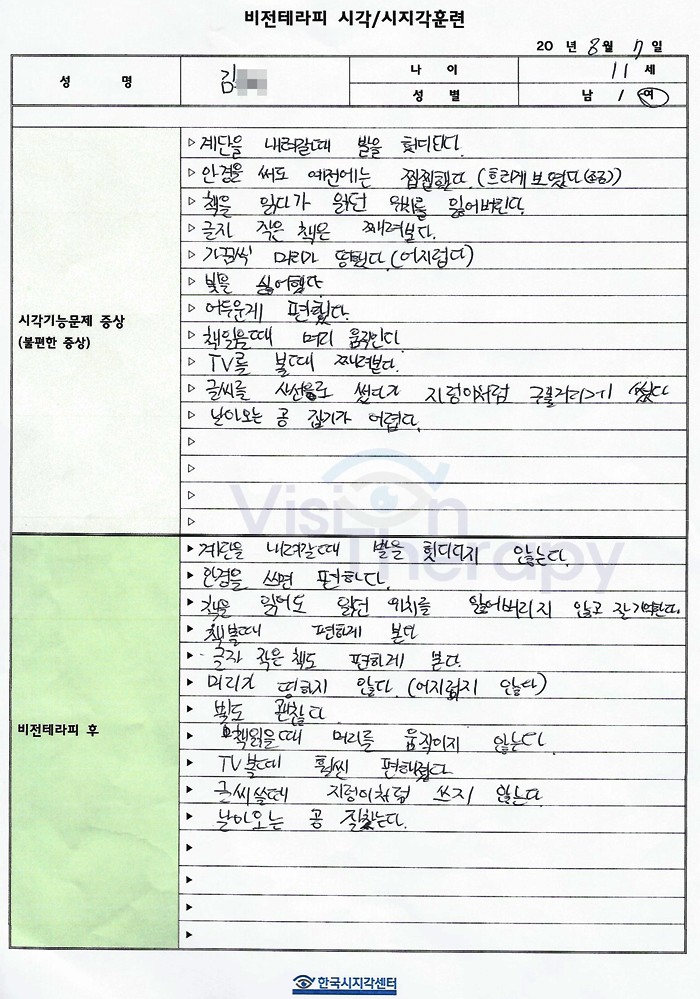 비전테라피 시각/시지각훈련
20 년 8 월 7 일
성 명 김
나 이 11 세
성 별 남 / 여
시각기능문제 증상
(불편한 증상)
▷ 계단을 내려갈때 발을 헛디딘다.
▷ 안경을 써도 예전에는 찝찝했다. (흐리게 보였다 (조금))
▷ 책을 읽다가 읽던 위치를 잃어버린다.
▷ 글자 작은 책은 째려보다.
▷ 가끔씩 머리가 띵했다. (어지럽다)
▷ 빛을 싫어했다
▷ 어두운게 편했다.
▷ 책읽을때 머리 움직인다.
▷ TV를 볼때 째려본다.
▷ 글씨를 사선으로 썼다가 지렁이처럼 구불거리게 썼다
▷ 날아오는 공 잡기가 어렵다.
▷
▷
▷
▷
Vision Therapy
비전테라피 후
▶ 계단을 내려갈때 발을 헛디디지 않는다.
▶ 안경을 쓰면 편하다.
▶ 책을 읽어도 읽던 위치를 잃어버리지 않고 잘 기억한다.
▶ 책볼때 편하게 본다
▶ 글자 작은 책도 편하게 본다.
▶ 머리가 띵하지 않다. (어지럽지 않다)
▶ 빛도 괜찮다
▶ 책읽을때 머리를 움직이지 않는다
▶ TV볼때 훨씬 편해졌다
▶ 글씨쓸때 지렁이처럼 쓰지 않는다.
▶ 날아오는 공 잘잡는다.
▶
▶
▶
▶
한국시지각센터